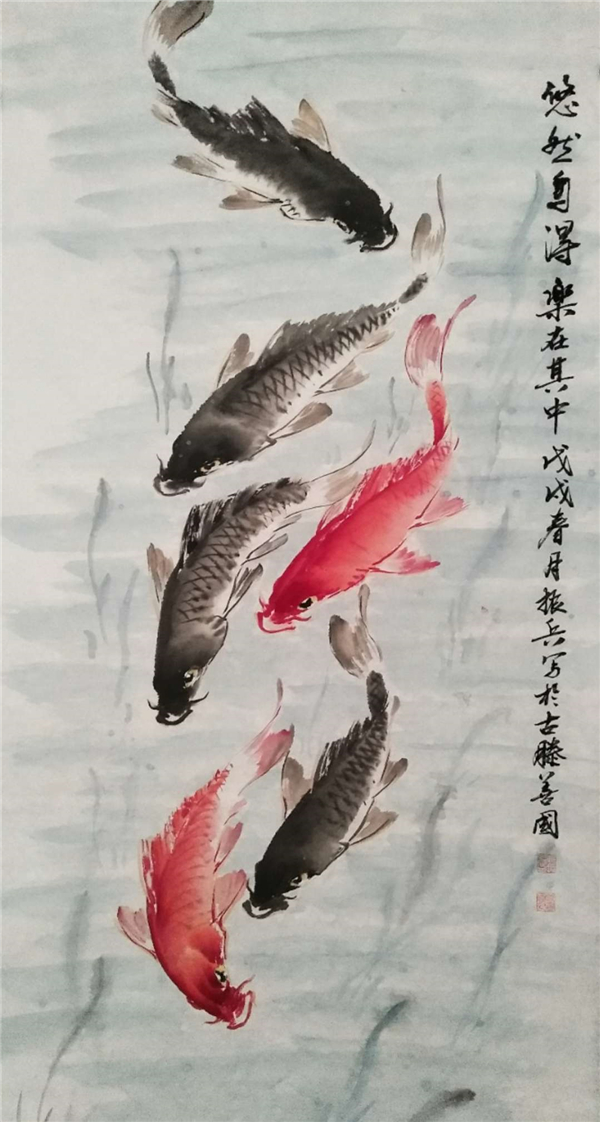 悠然自得樂在其中戊戌春月振兵写於古滕善國